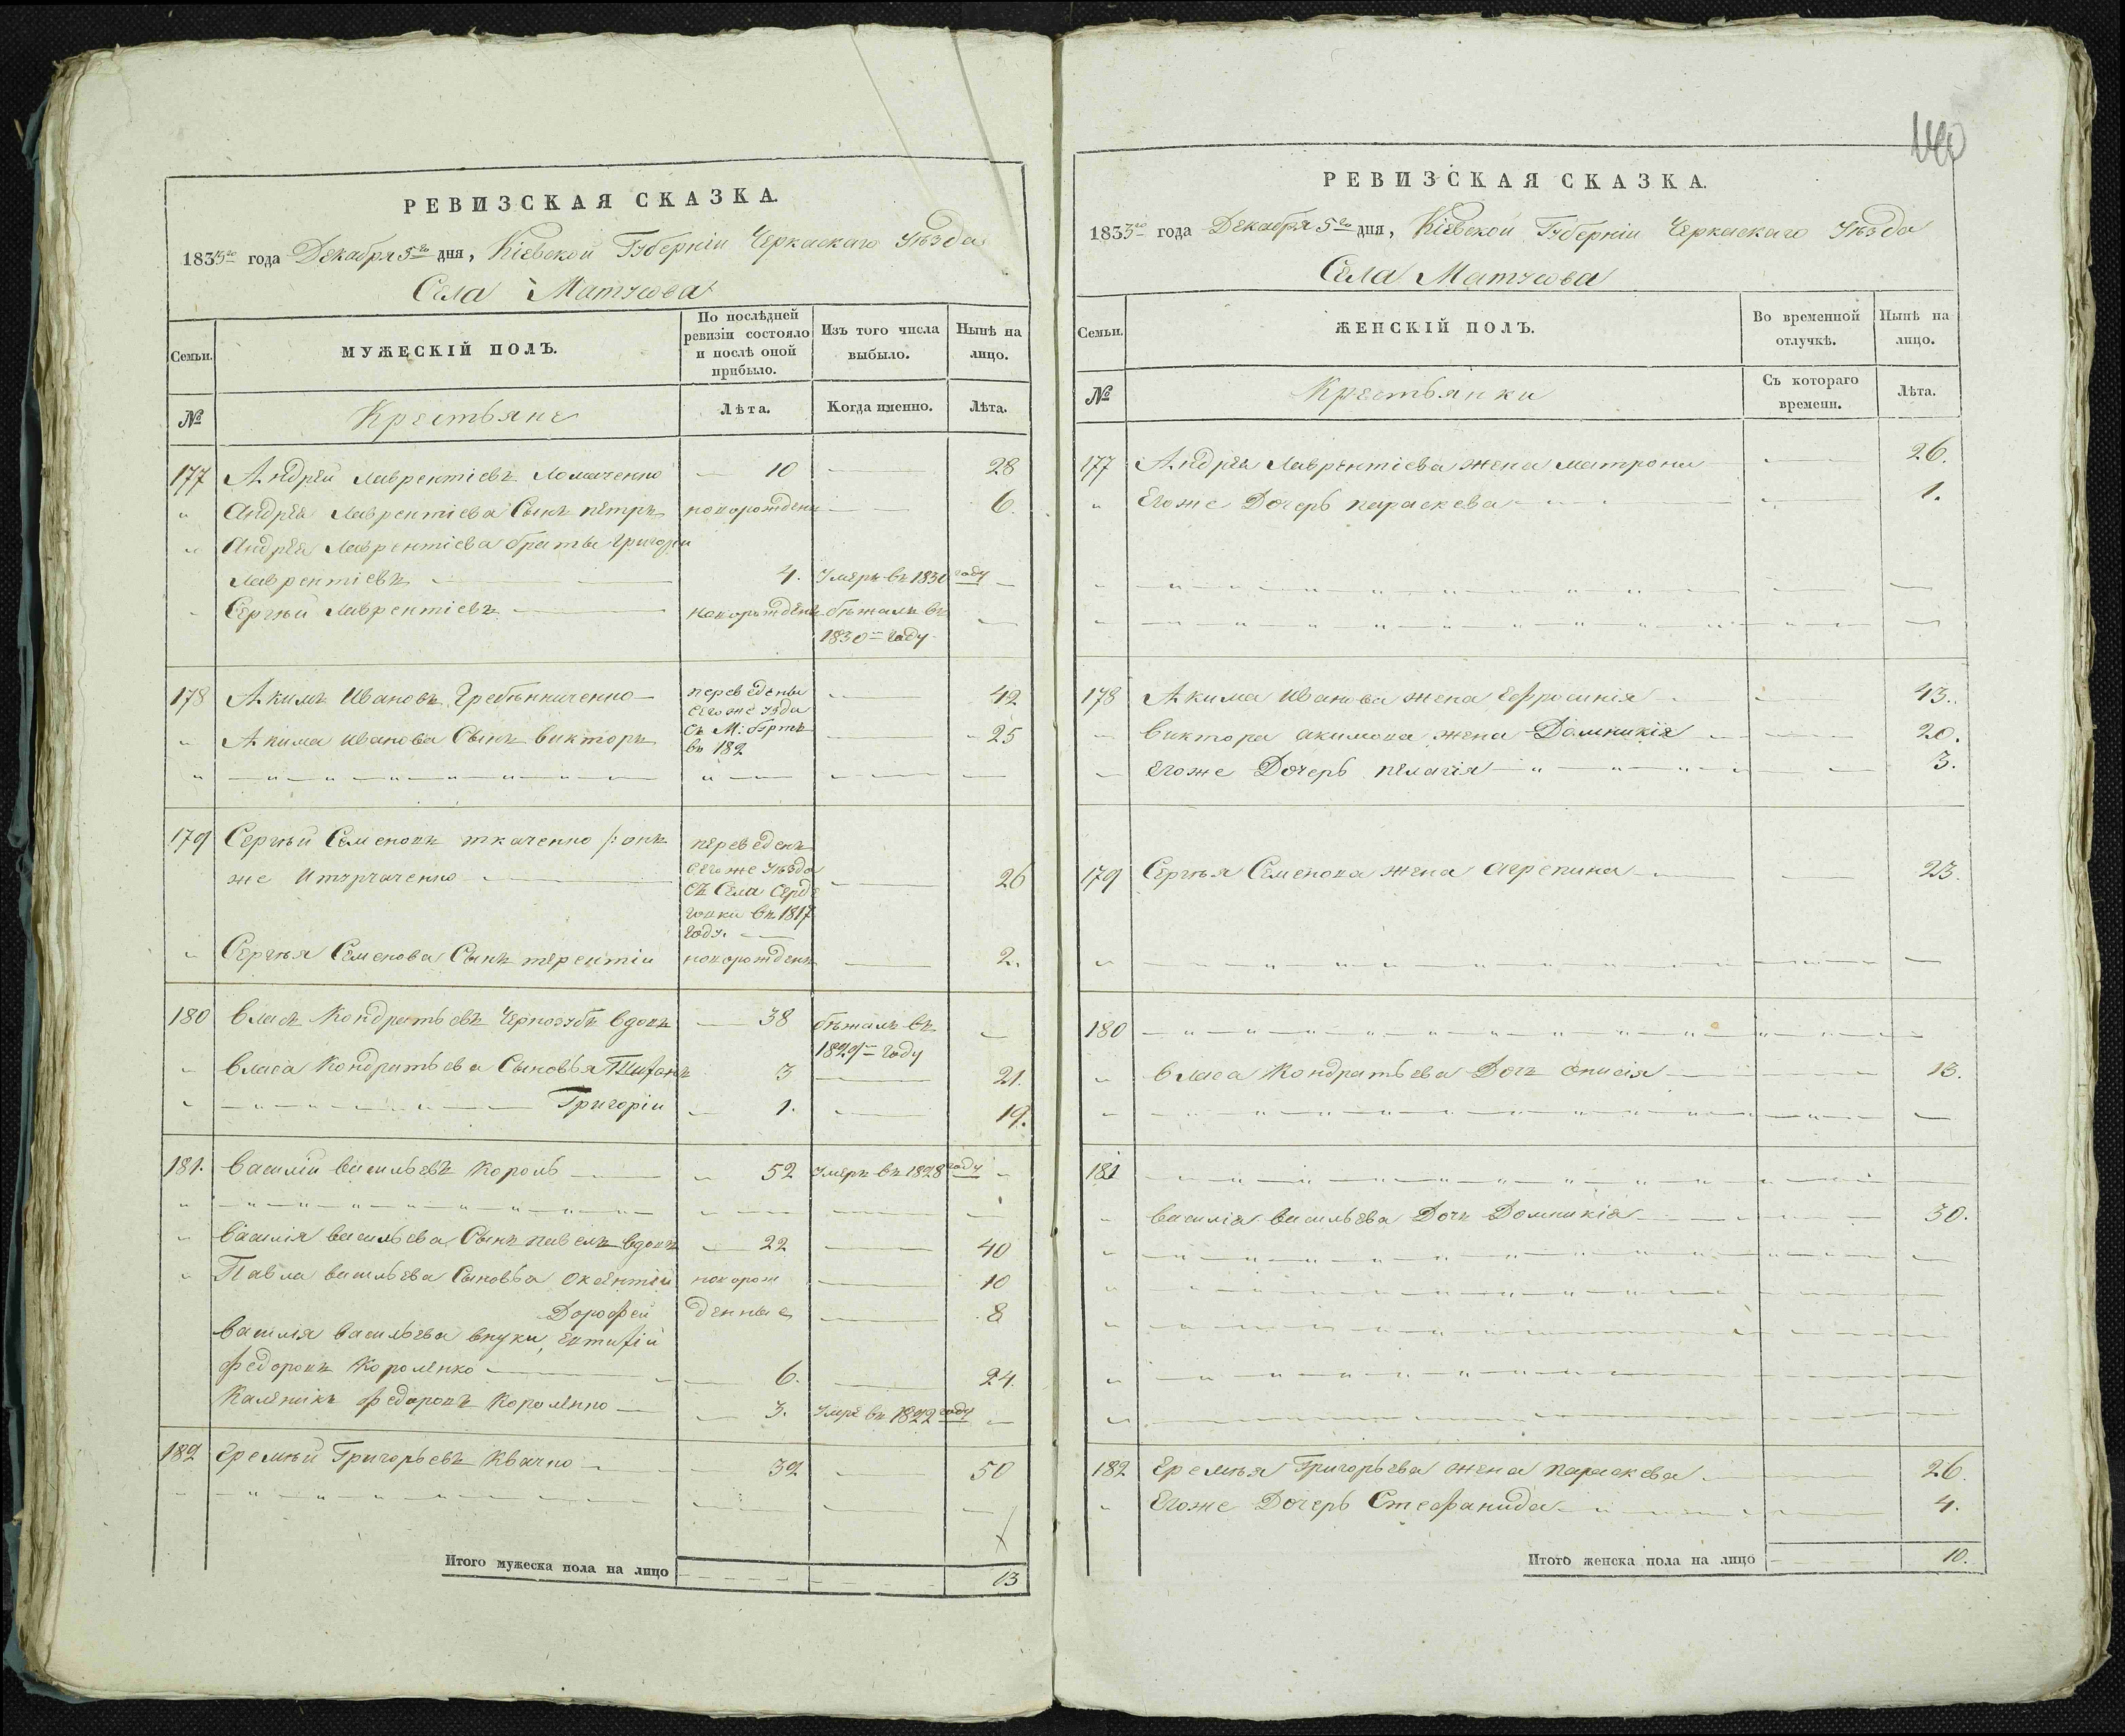 РЕВИЗСКАЯ СКАЗКА.
1833го года Декабря 5го дня, Кіевской Губерніи Черкаскаго Уѣзда
Села Матусова
Семьи.
МУЖЕСКІЙ ПОЛЪ.
По послѣдней ревизіи состояло и послѣ оной прибыло.
Изъ того числа выбыло.
Нынѣ на лицо.
№
Крестьяне
Лѣта.
Когда именно.
Лѣта.
177 Андрей Лаврентіевъ 10 — 28
" Андрея Лаврентіева Сынъ петръ новорожденъ — 6.
" Андрея Лаврентіева братья Григорій
Лаврентіевъ — 4. Умеръ въ 1830 году —
" Сергѣй Лаврентіевъ — новорожденъ бѣжалъ въ —
1830м году
178 Акимъ Ивановъ — переведены — 42
сегоже уѣзда
" Акима Иванова Сынъ викторъ съ М: — 25
въ 182
179 Сергѣй Семеновъ ткаченко /: онъ переведенъ
же — сегоже Уѣзда — 26
съ Села
въ 1817
году. —
" Сергѣя Семенова Сынъ терентій новорожденъ — 2.
180 власъ Кондратьевъ Чернозубъ вдовъ — 38 бѣжалъ въ —
1829м году
" власа Кондратьева Сыновья 3 — 21.
" Григорій — 1. — 19.
181. василій васильевъ Король — 52 Умеръ въ 1828 году —
" василія васильева Сынъ павелъ вдовъ — 22 — 40
" Павла васильева Сыновья новорож — 10
Дорофей денные — 8
василія васильева внуки,
федоровъ Короленко — 6. — 24.
Каленикъ федоровъ Короленко — 3. Умре въ 1822 году —
182 Еремѣй Григорьевъ Квачко — 32 — 50
Итого мужеска пола на лицо 13
140
РЕВИЗСКАЯ СКАЗКА.
1833го года Декабря 5го дня, Кіевской Губерніи Черкаскаго Уѣзда
Села Матусова
Семьи.
ЖЕНСКІЙ ПОЛЪ.
Во временной отлучкѣ.
Нынѣ на лицо.
№
Крестьянки
Съ котораго времени.
Лѣта.
177 Андрея Лаврентіева жена матрона — 26.
" Егоже Дочерь параскева — 1.
178 Акима Иванова жена Ефросинія — 43.
виктора акимова жена Домникія — 20.
Егоже Дочерь пелагія — 3.
179 Сергѣя Семенова жена агрепина — 23.
180
" власа Кондратьева Дочь — 13.
181
" василія васильева Дочь Домникія — 30.
182 Еремѣя Григорьева жена параскева — 26.
" Егоже Дочерь Стефанида — 4.
Итого женска пола на лицо 10.